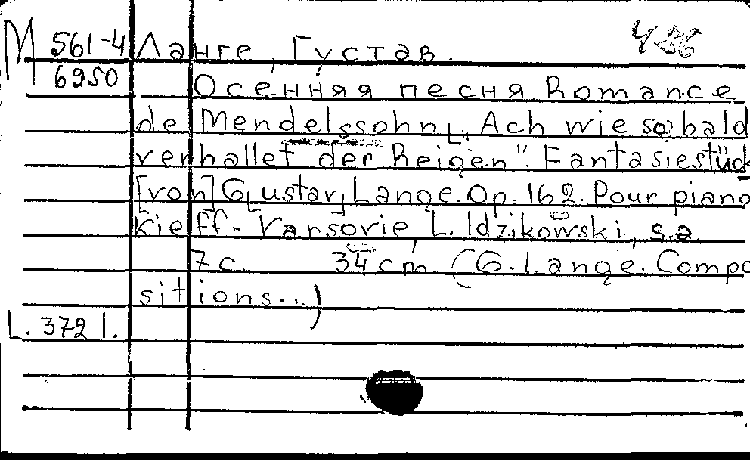 М 561-4 Ланге, Густав. 486
6950 Осенняя песня Romance
de Mendelssohn „Ach wie so bald
verhallet der Reigen". Fantasiestück
[von] G[ustav] Lange. Op. 162. Pour piano
Kieff-Varsovie, L. Idzikowski, s.a.
7 c. 34 cm (G. Lange. Compo
sitions...)
L. 372 l.